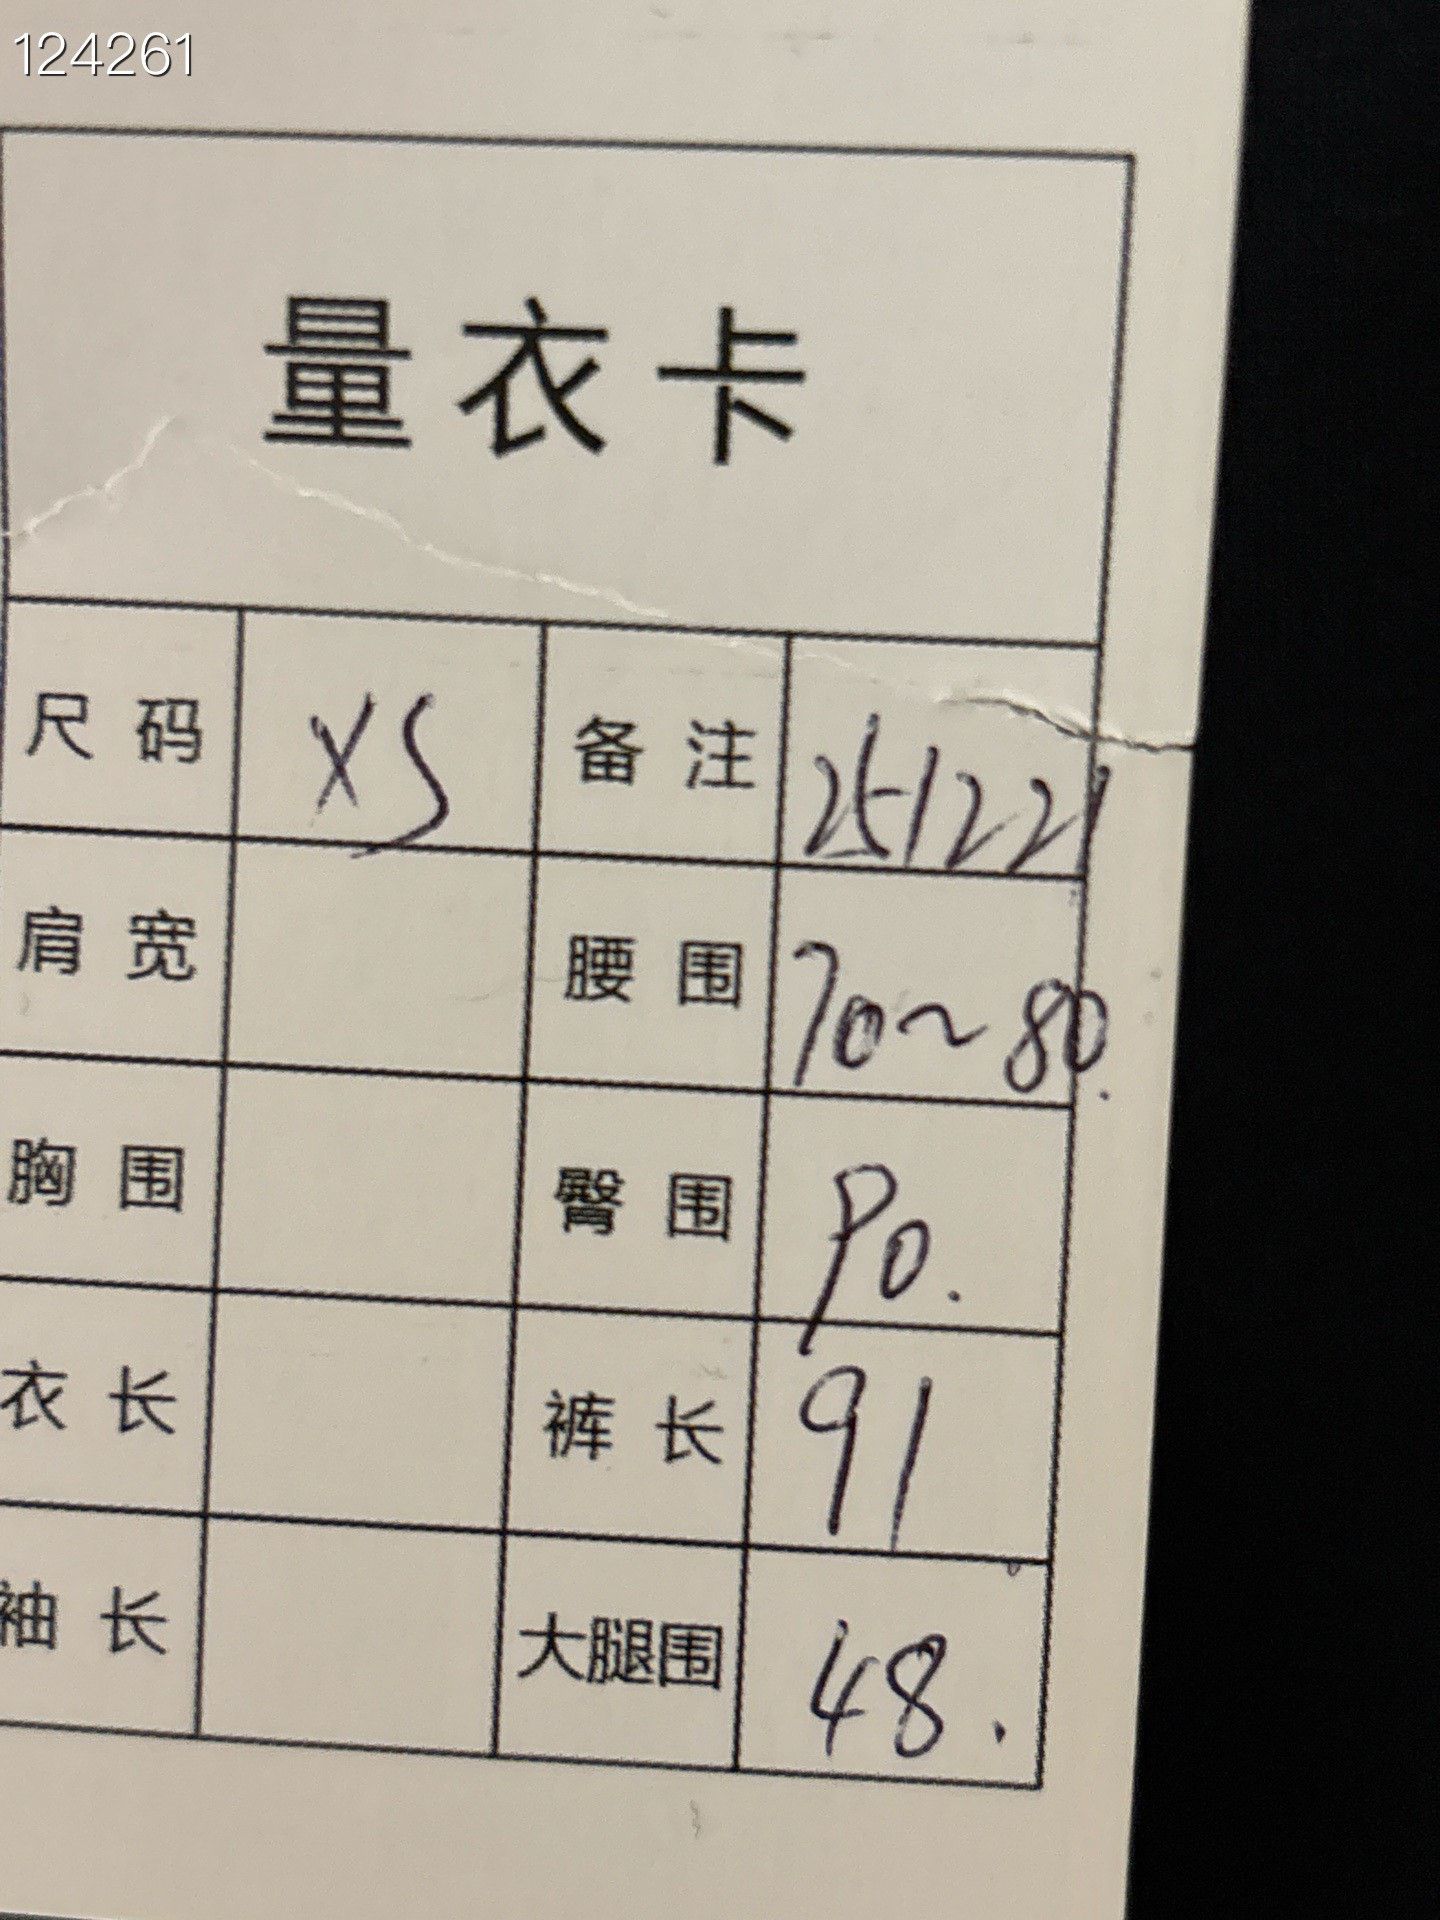 124261
量衣卡
尺码 XS 备注 251221
肩宽 腰围 70~80.
胸围 臀围 90.
衣长 裤长 91
袖长 大腿围 48.